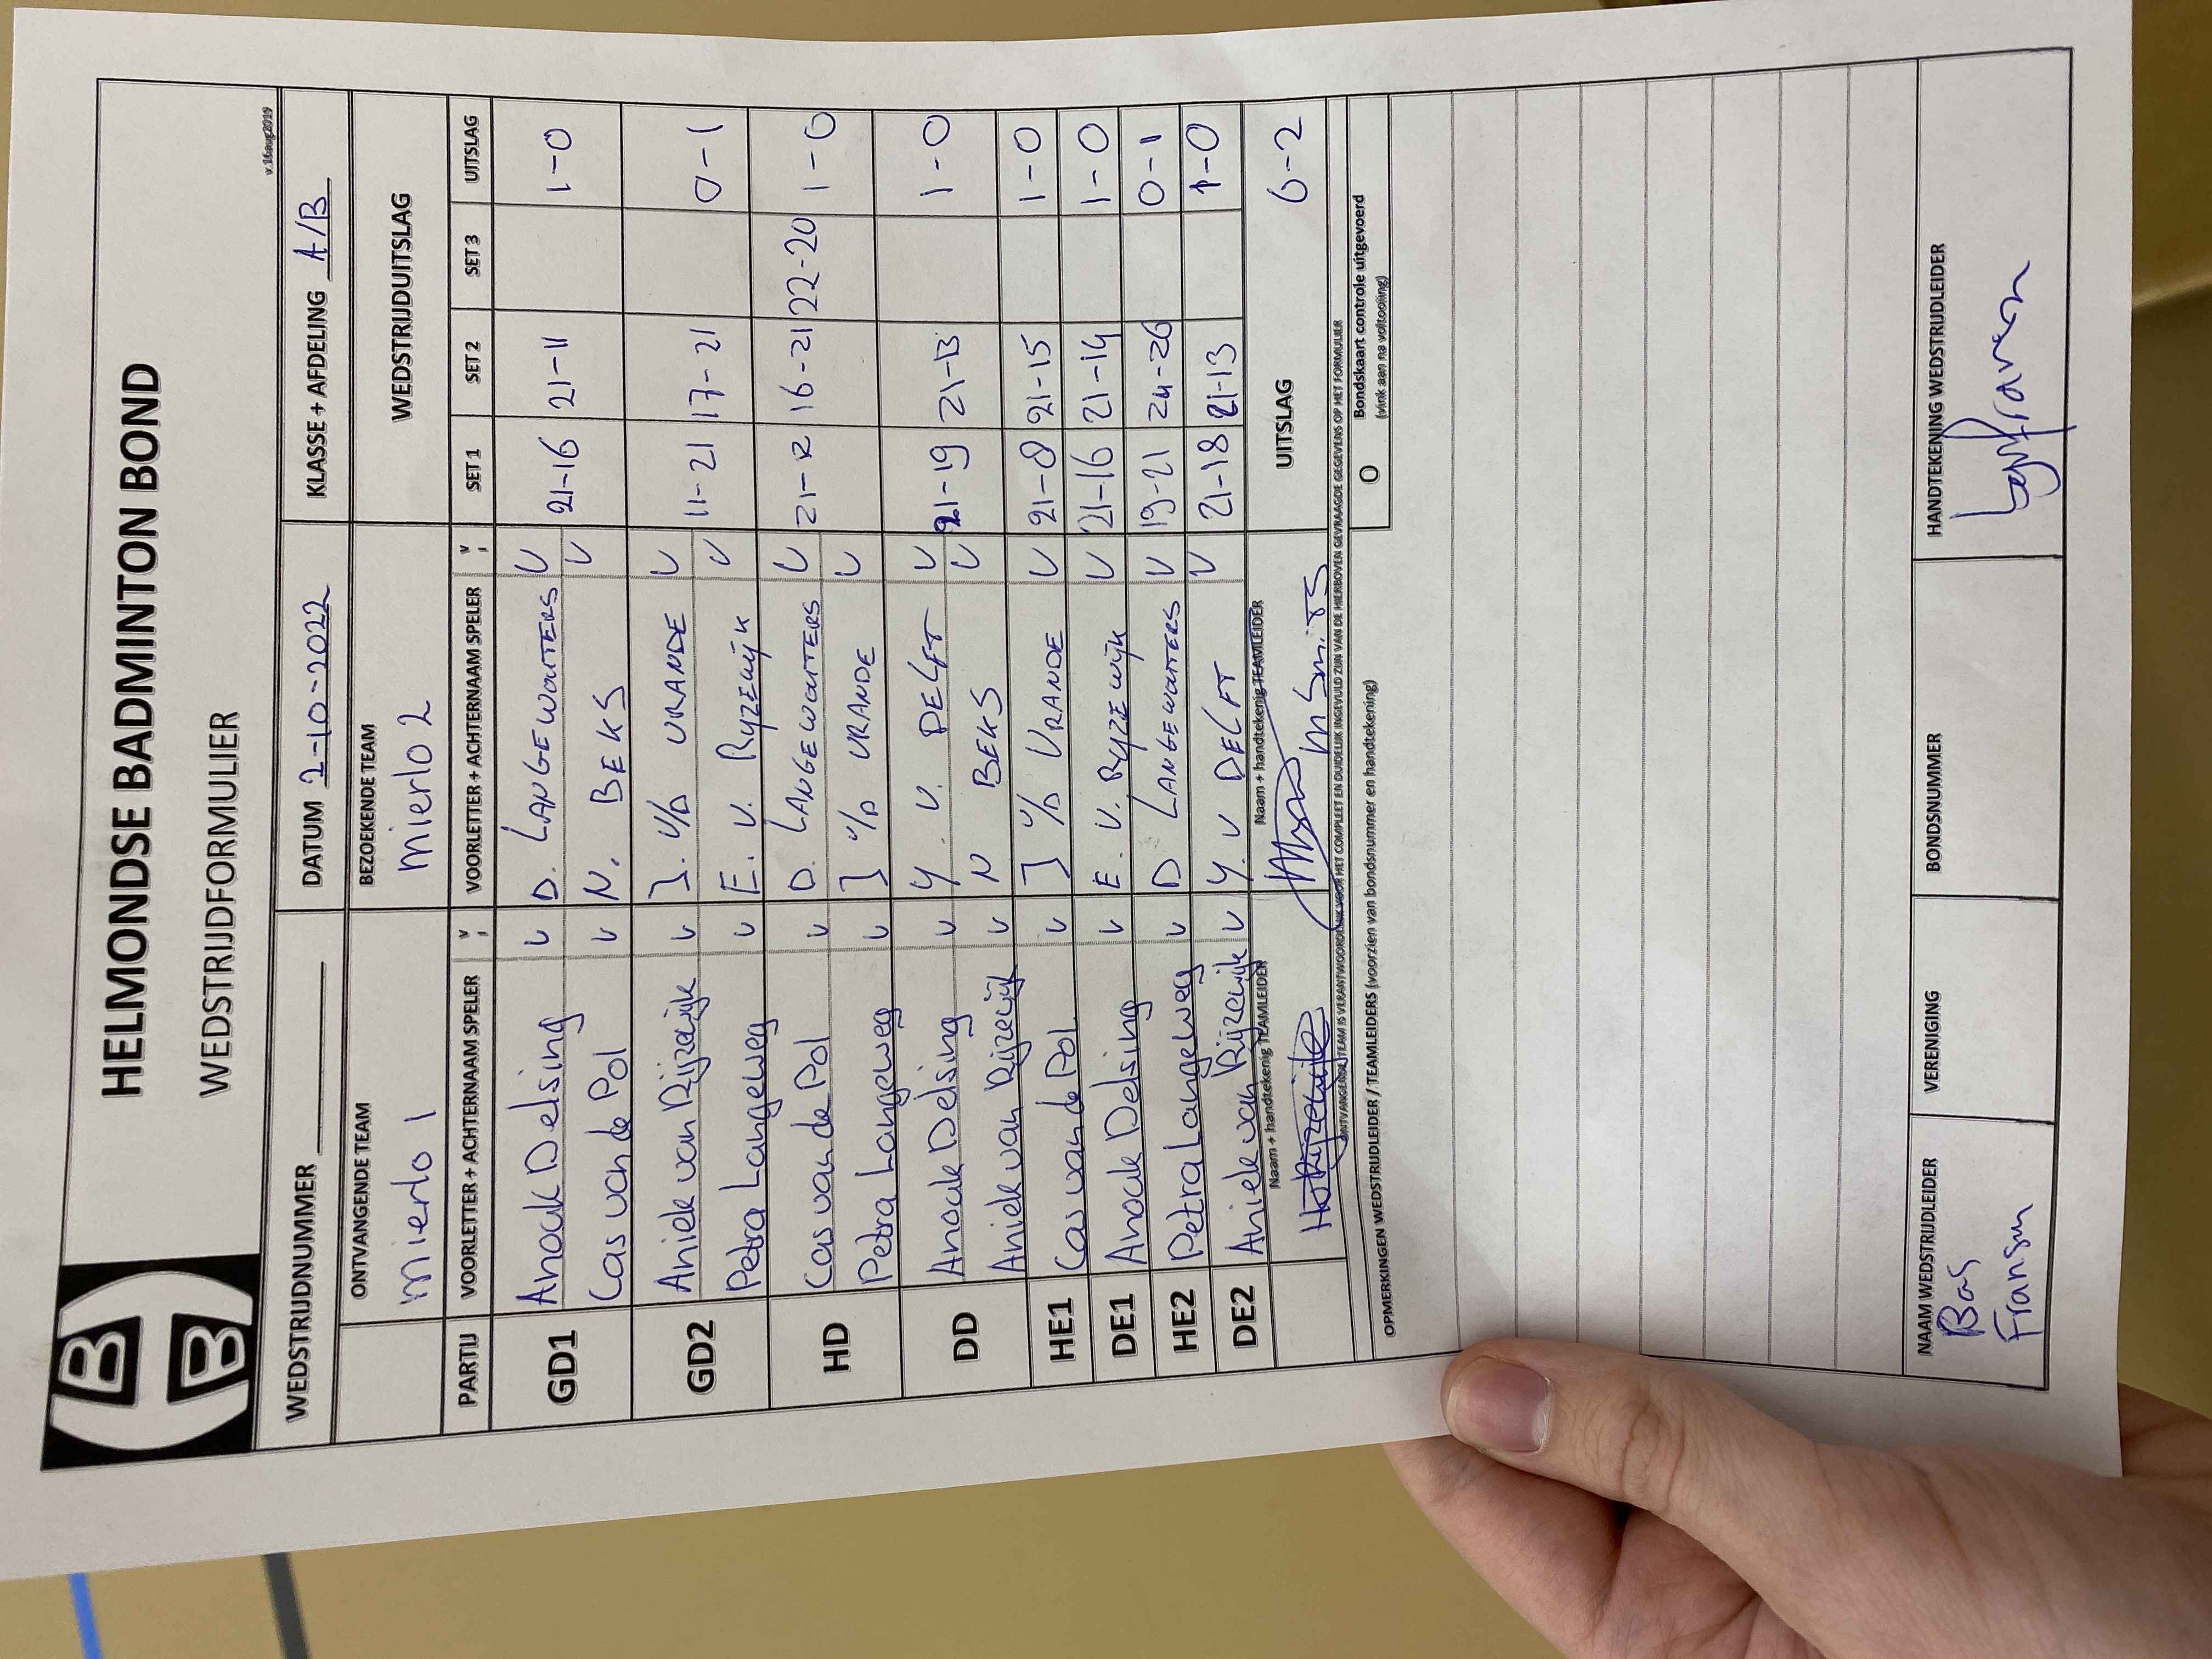 HELMONDSE BADMINTON BOND
WEDSTRIJDFORMULIER
v.16aug2019
WEDSTRIJDNUMMER
DATUM 2-10-2022
KLASSE + AFDELING A/B
ONTVANGENDE TEAM
Mierlo 1
BEZOEKENDE TEAM
Mierlo 2
WEDSTRIJDUITSLAG
PARTIJ VOORLETTER + ACHTERNAAM SPELER V; VOORLETTER + ACHTERNAAM SPELER V; SET 1 SET 2 SET 3 UITSLAG
GD1 Anouk Delsing v D. LANGEWOUTERS V 21-16 21-11 1-0
Cas van de Pol v N. BEKS V
GD2 Aniek van Rijzewijk v J. v/D VRANDE V 11-21 17-21 0-1
Petra Langeweg v E. V. RYZEWijk V
HD Cas van de Pol v D. LANGEWOUTERS V 21-12 16-21 22-20 1-0
Petra Langeweg v J v/D VRANDE V
DD Anouk Delsing v Y. V. DELFT V 21-19 21-13 1-0
Aniek van Rijzewijk v N BEKS V
HE1 Cas van de Pol v J v/D VRANDE V 21-8 21-15 1-0
DE1 Anouk Delsing v E. V. RYZEWijk V 21-16 21-14 1-0
HE2 Petra Langeweg v D LANGEWOUTERS V 19-21 24-26 0-1
DE2 Aniek van Rijzewijk v Y. V DELFT V 21-18 21-13 1-0
Naam + handtekenig TEAMLEIDER
Naam + handtekenig TEAMLEIDER
M Smits
UITSLAG 6-2
ONTVANGENDE TEAM IS VERANTWOORDELIJK VOOR HET COMPLEET EN DUIDELIJK INGEVULD ZIJN VAN DE HIERBOVEN GEVRAAGDE GEGEVENS OP HET FORMULIER
OPMERKINGEN WEDSTRIJDLEIDER / TEAMLEIDERS (voorzien van bondsnummer en handtekening)
O Bondskaart controle uitgevoerd
(vink aan na voltooiing)
NAAM WEDSTRIJDLEIDER
Bas
Fransen
VERENIGING
BONDSNUMMER
HANDTEKENING WEDSTRIJDLEIDER